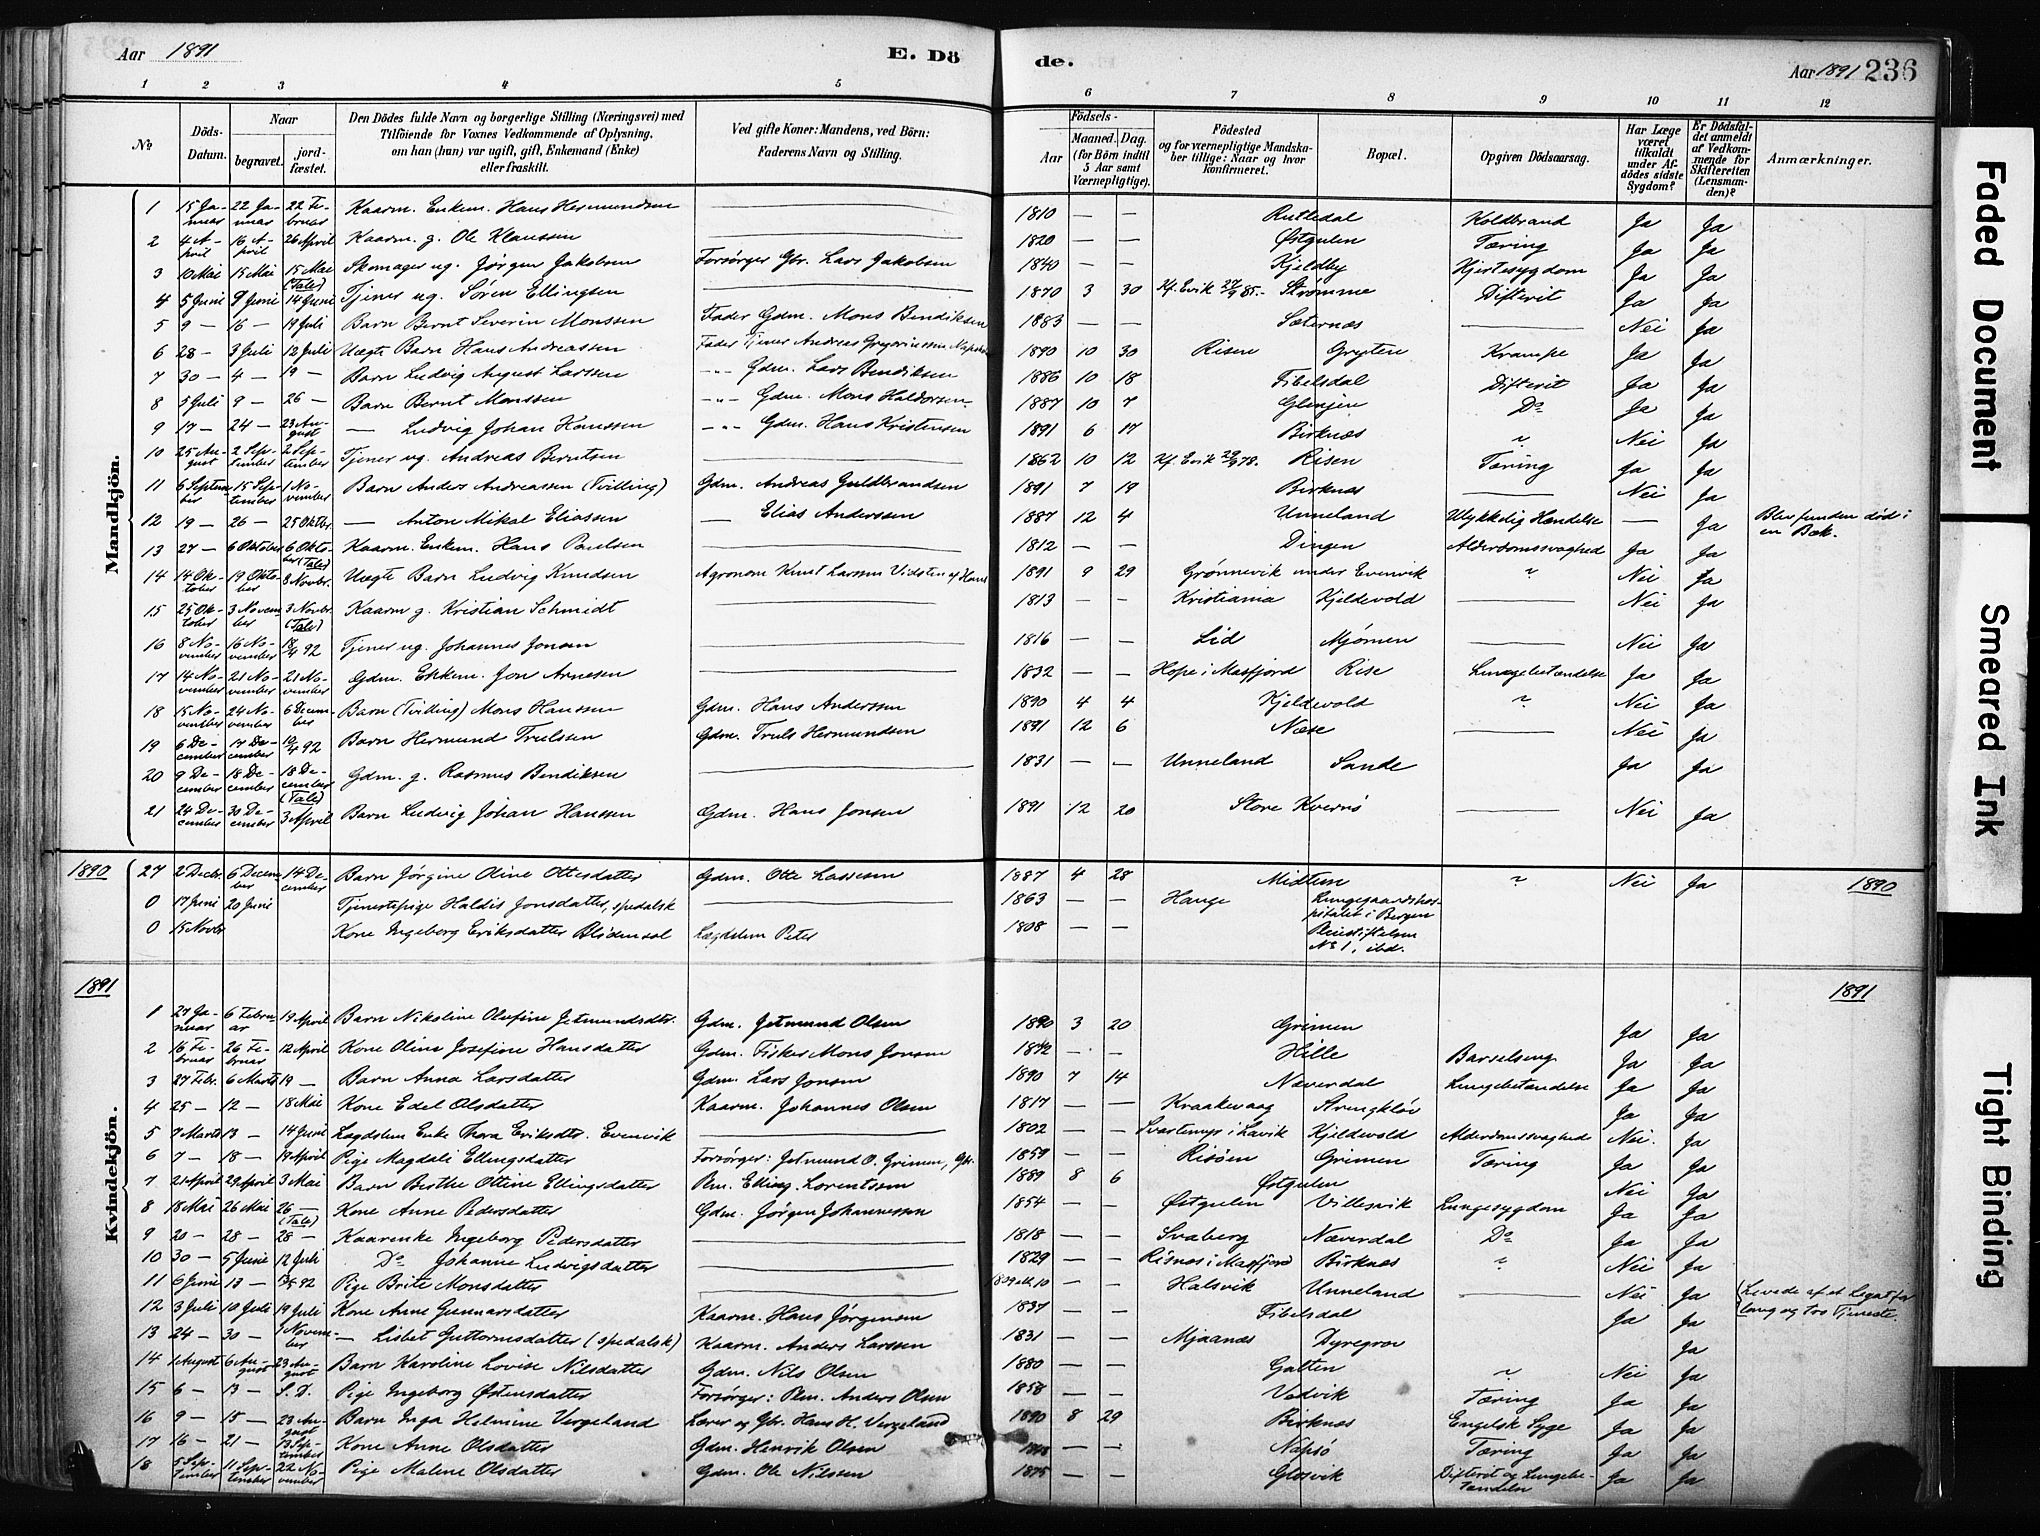 Aar 1891 E. Dö de. Aar 1891 236
1 2 3 4 5 6 7 8 9 10 11 12
№ Döds-Datum. Naar begravet. jord-fæstet. Den Dödes fulde Navn og borgerlige Stilling (Næringsvei) med Tilföiende for Voxnes Vedkommende af Oplysning, om han (hun) var ugift, gift, Enkemand (Enke) eller fraskilt. Ved gifte Koner: Mandens, ved Börn: Faderens Navn og Stilling. Födsels-Aar Maaned. Dag. (for Börn indtil 5 Aar samt Værnepligtige). Födested og for værnepligtige Mandskaber tillige: Naar og hvor konfirmeret. Bopæl. Opgiven Dödsaarsag. Har Læge været tilkaldt under Afdödes sidste Sygdom? Er Dödsfaldet anmeldt af Vedkommende for Skifteretten (Lensmanden)? Anmærkninger.
Mandkjön.
1 15 Januar 22 Januar 22 Februar Kaarm. Enkem. Hans Hermundsen — 1810 — — Rutledal Koldbrand Ja Ja
2 4 April 16 April 26 April Kaarm. g. Ole Klaussen — 1820 — — Østgulen Tæring Ja Ja
3 10 Mai 15 Mai 15 Mai (Tale) Skomager ug. Jørgen Jakobsen Forsørger Gbr. Lars Jakobsen 1840 — — Kjeldby Hjertesygdom Ja Ja
4 5 Juni 9 Juni 14 Juni Tjener ug. Søren Ellingsen — 1870 3 30 Kf. Evik 27/9 85. – Strømme Difterit Ja Ja
5 9 — 16 — 19 Juli Barn Bernt Severin Monssen Fader Gdm. Mons Bendiksen 1883 — — Sæternæs — Nei Ja
6 28 — 3 Juli 12 Juli Uægte Barn Hans Andreassen Fader Tjener Andreas Gregoriussen 1890 10 30 Risen Grysten Krampe Ja Ja
7 30 — 4 — 19 — Barn Ludvig August Larssen -"- Gdm. Lars Bendiksen 1886 10 18 Fibelsdal Difterit Ja Ja
8 5 Juli 9 — 26 — Barn Bernt Monssen -"- Gdm. Mons Haldorsen 1887 10 7 Glenjen Do Ja Ja
9 17 — 24 — 23 August — Ludvig Johan Hanssen -"- Gdm. Hans Kristensen 1891 6 17 Birknæs " Nei Ja
10 25 August 2 September 2 September Tjener ug. Andreas Berntsen — 1862 10 12 Kf. Evik 29/9 78. Risen Tæring Ja Ja
11 6 September 15 September 1 November Barn Anders Andreassen (Tvilling) Gdm. Andreas Guldbrandsen 1891 7 19 Birknæs — Nei Ja
12 19 — 26 — 25 Oktbr. — Anton Mikal Eliassen — Elias Anderssen 1887 12 4 Unneland Ulykkelig Hændelse — Ja Blev funden død i en Bæk.
13 27 — 6 Oktober 6 Oktober (Tale) Kaarm. Enkem. Hans Paulsen — 1812 — — Dingen Alderdomssvaghed Ja Ja
14 14 Oktober 19 Oktober 8 Novbr. Uægte Barn Ludvig Knudsen Agronom Knut Larssen Vidsten 1891 9 29 Grønnevik under Evenvik " Nei Ja
15 25 Oktober 3 November 3 Novbr. (Tale) Kaarm g. Kristian Schmidt — 1813 — — Kristiania Kjeldevold — Nei Ja
16 8 November 16 November 18/4 92 Tjener ug. Johannes Jonsen — 1816 — — Lid Mjømen — Nei Ja
17 14 November 21 November 21 November Gdm. Enkem. Jon Arnesen — 1832 — — Hope i Masfjord Rise Lungebetændelse Ja Ja
18 15 November 24 November 6 December Barn (Tvilling) Mons Hanssen Gdm. Hans Anderssen 1890 4 4 Kjeldevold " Nei Ja
19 6 December 17 December 10/4 92 Barn Hermund Trulssen Gdm. Truls Hermundsen 1891 12 6 Næse — Nei Ja
20 9 December 18 December 18 December (Tale) Gdm. g. Rasmus Bendiksen — 1831 — — Unneland Sande Ja Ja
21 24 December 30 December 3 April Barn Ludvig Johan Hanssen Gdm. Hans Jonsen 1891 12 20 Store Kvernø — Nei Ja
1890 27 2 Decbr. 6 December 14 December Barn Jørgine Oline Ottesdatter Gdm. Otte Lassesen 1887 4 28 Midtun " Nei Ja 1890
0 17 Juni 20 Juni Tjenestepige Haldis Jonsdatter, spedalsk — 1863 — — Hauge Lungegaardshospitalet i Bergen
0 15 Novbr Kone Ingeborg Eriksdatter Lægdslem Peter 1808 — — Pleiestiftelsen № 1, ibd.
1891 1891
Kvindekjön.
1 27 Januar 6 Februar 19 April Barn Nikoline Olufine Jetmundsdtr. Gdm. Jetmund Olsen 1890 3 20 Grimen Ja Ja
2 16 Februar 26 Februar 12 April Kone Oline Josefine Hansdatter Gdm. Fisker Mons Jonsen 1842 — — Hille Barselseng Ja Ja
3 27 Febr. 6 Marts 19 — Barn Anna Larsdatter Gdm. Lars Jonsen 1890 7 14 Næverdal Lungebetændelse Ja Ja
4 25 — 12 — 18 Mai Kone Edel Olsdatter Kaarm. Johannes Olsen 1817 — — Kraakevaag Ja Ja
5 7 Marts 13 — 14 Juni Lægdslem Enke Thora Eriksdtr. Evenvik — 1802 — — i Lavik Kjeldevold Alderdomssvaghed Nei. Ja
6 7 — 18 — 19 April Pige Magdali Ellingsdatter Forsørger: Jetmund O. Grimen, Gbr. 1859 — — Risøen Grimen Tæring Ja Ja
7 21 April 29 April 3 Mai Barn Berthe Ottine Ellingsdatter Plm. Elling Lorentssen 1889 8 6 Østgulen Nei Ja
8 18 Mai 26 Mai 26 — (Tale) Kone Anne Pedersdatter Gdm. Jørgen Johannessen 1854 — — Østgulen Villesvik Lungesygdom Ja Ja
9 20 — 28 — 28 — Kaarenke Ingeborg Pedersdatter — 1818 — — Svaberg Næverdal Do Ja Ja
10 30 — 5 Juni 12 Juli Do Johanne Ludvigsdatter — 1829 — — Risnes i Masfjord Birknes " Nei Ja
11 6 Juni 13 — 92 Pige Brite Monsdatter — — — Halsvik Unneland — Nei Ja Levede af et Legat for lang og tro Tjeneste.
12 3 Juli 10 Juli 19 Juli Kone Anne Gunnarsdatter Kaarm. Hans Jørgensen 1837 — — Fibelsdal Ja Ja
13 24 — 30 — 1 November — Lisbet Guttormsdatter (spedalsk) Kaarm. Anders Larssen 1831 — — Mjaanæs Dyregrov Ja
14 1 August 6 August 23 August Barn Karoline Lovise Nilsdatter Gdm. Nils Olsen 1880 — — Galten " Nei Ja
15 6 — 13 — S. D. Pige Ingeborg Østensdatter Forsørger: Plm. Anders Olsen 1858 — — Vadvik Tæring Ja Ja
16 9 — 15 — 23 August Barn Inga Helmine Vergeland Lærer og Gbr. Hans H. Vergeland 1890 8 29 Birknes Engelsk Syge Ja Ja
17 16 — 21 — 13 September Kone Anne Olsdatter Gdm. Henrik Olsen — — Napsø Tæring Ja Ja
18 5 September 11 September 22 November Pige Malene Olsdatter Gdm. Ole Nilssen 1875 — — Glosvik Difterit og Lungebetændelse Ja Ja
Faded Document
Smeared Ink
Tight Binding